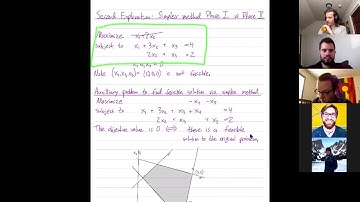 Second Explanation: Simplex method Phase I vs Phase II
Maximize x₁+2x₂
subject to x₁ + 3x₂ + x₃ = 4
2x₂ + x₃ = 2
x₁,x₂,x₃ ≥ 0
Note (x₁,x₂,x₃) = (0,0,0) is not feasible.
Auxiliary problem to find feasible solution via simplex method
Maximize -x₄ - x₅
subject to x₁ + 3x₂ + x₃ + x₄ = 4
2x₂ + x₃ + x₅ = 2
The objective value is 0 ⟺ there is a feasible
solution to the original problem.